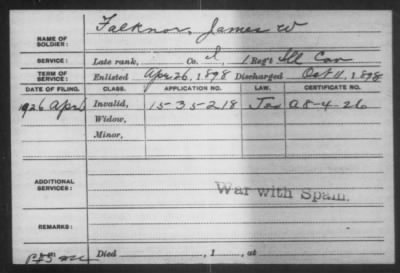 NAME OF SOLDIER: Falknor, James W
SERVICE: Late rank, Co. I, 1 Reg't Ill Cav
TERM OF SERVICE: Enlisted Apr 26, 1898 Discharged Oct 11, 1898
DATE OF FILING. CLASS. APPLICATION NO. LAW. CERTIFICATE NO.
1926 Apr Invalid, 15-35-218 A8-4-26
Widow,
Minor,
ADDITIONAL SERVICES: War with Spain.
REMARKS:
Died , 1 , at